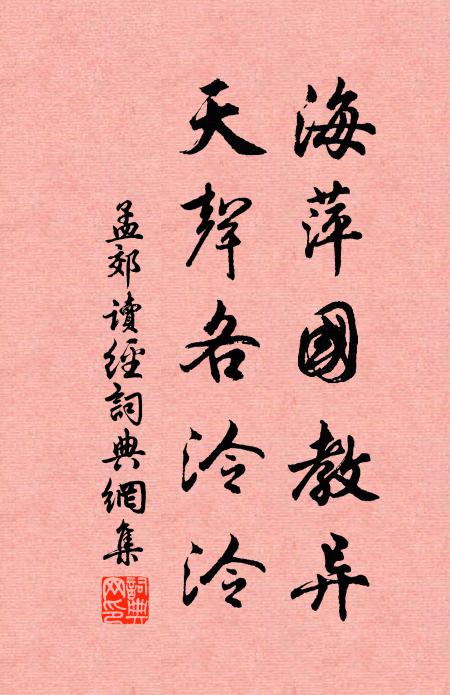 海萍國教异
天聲各泠泠
孟郊讀經詞典網集
詞典網印